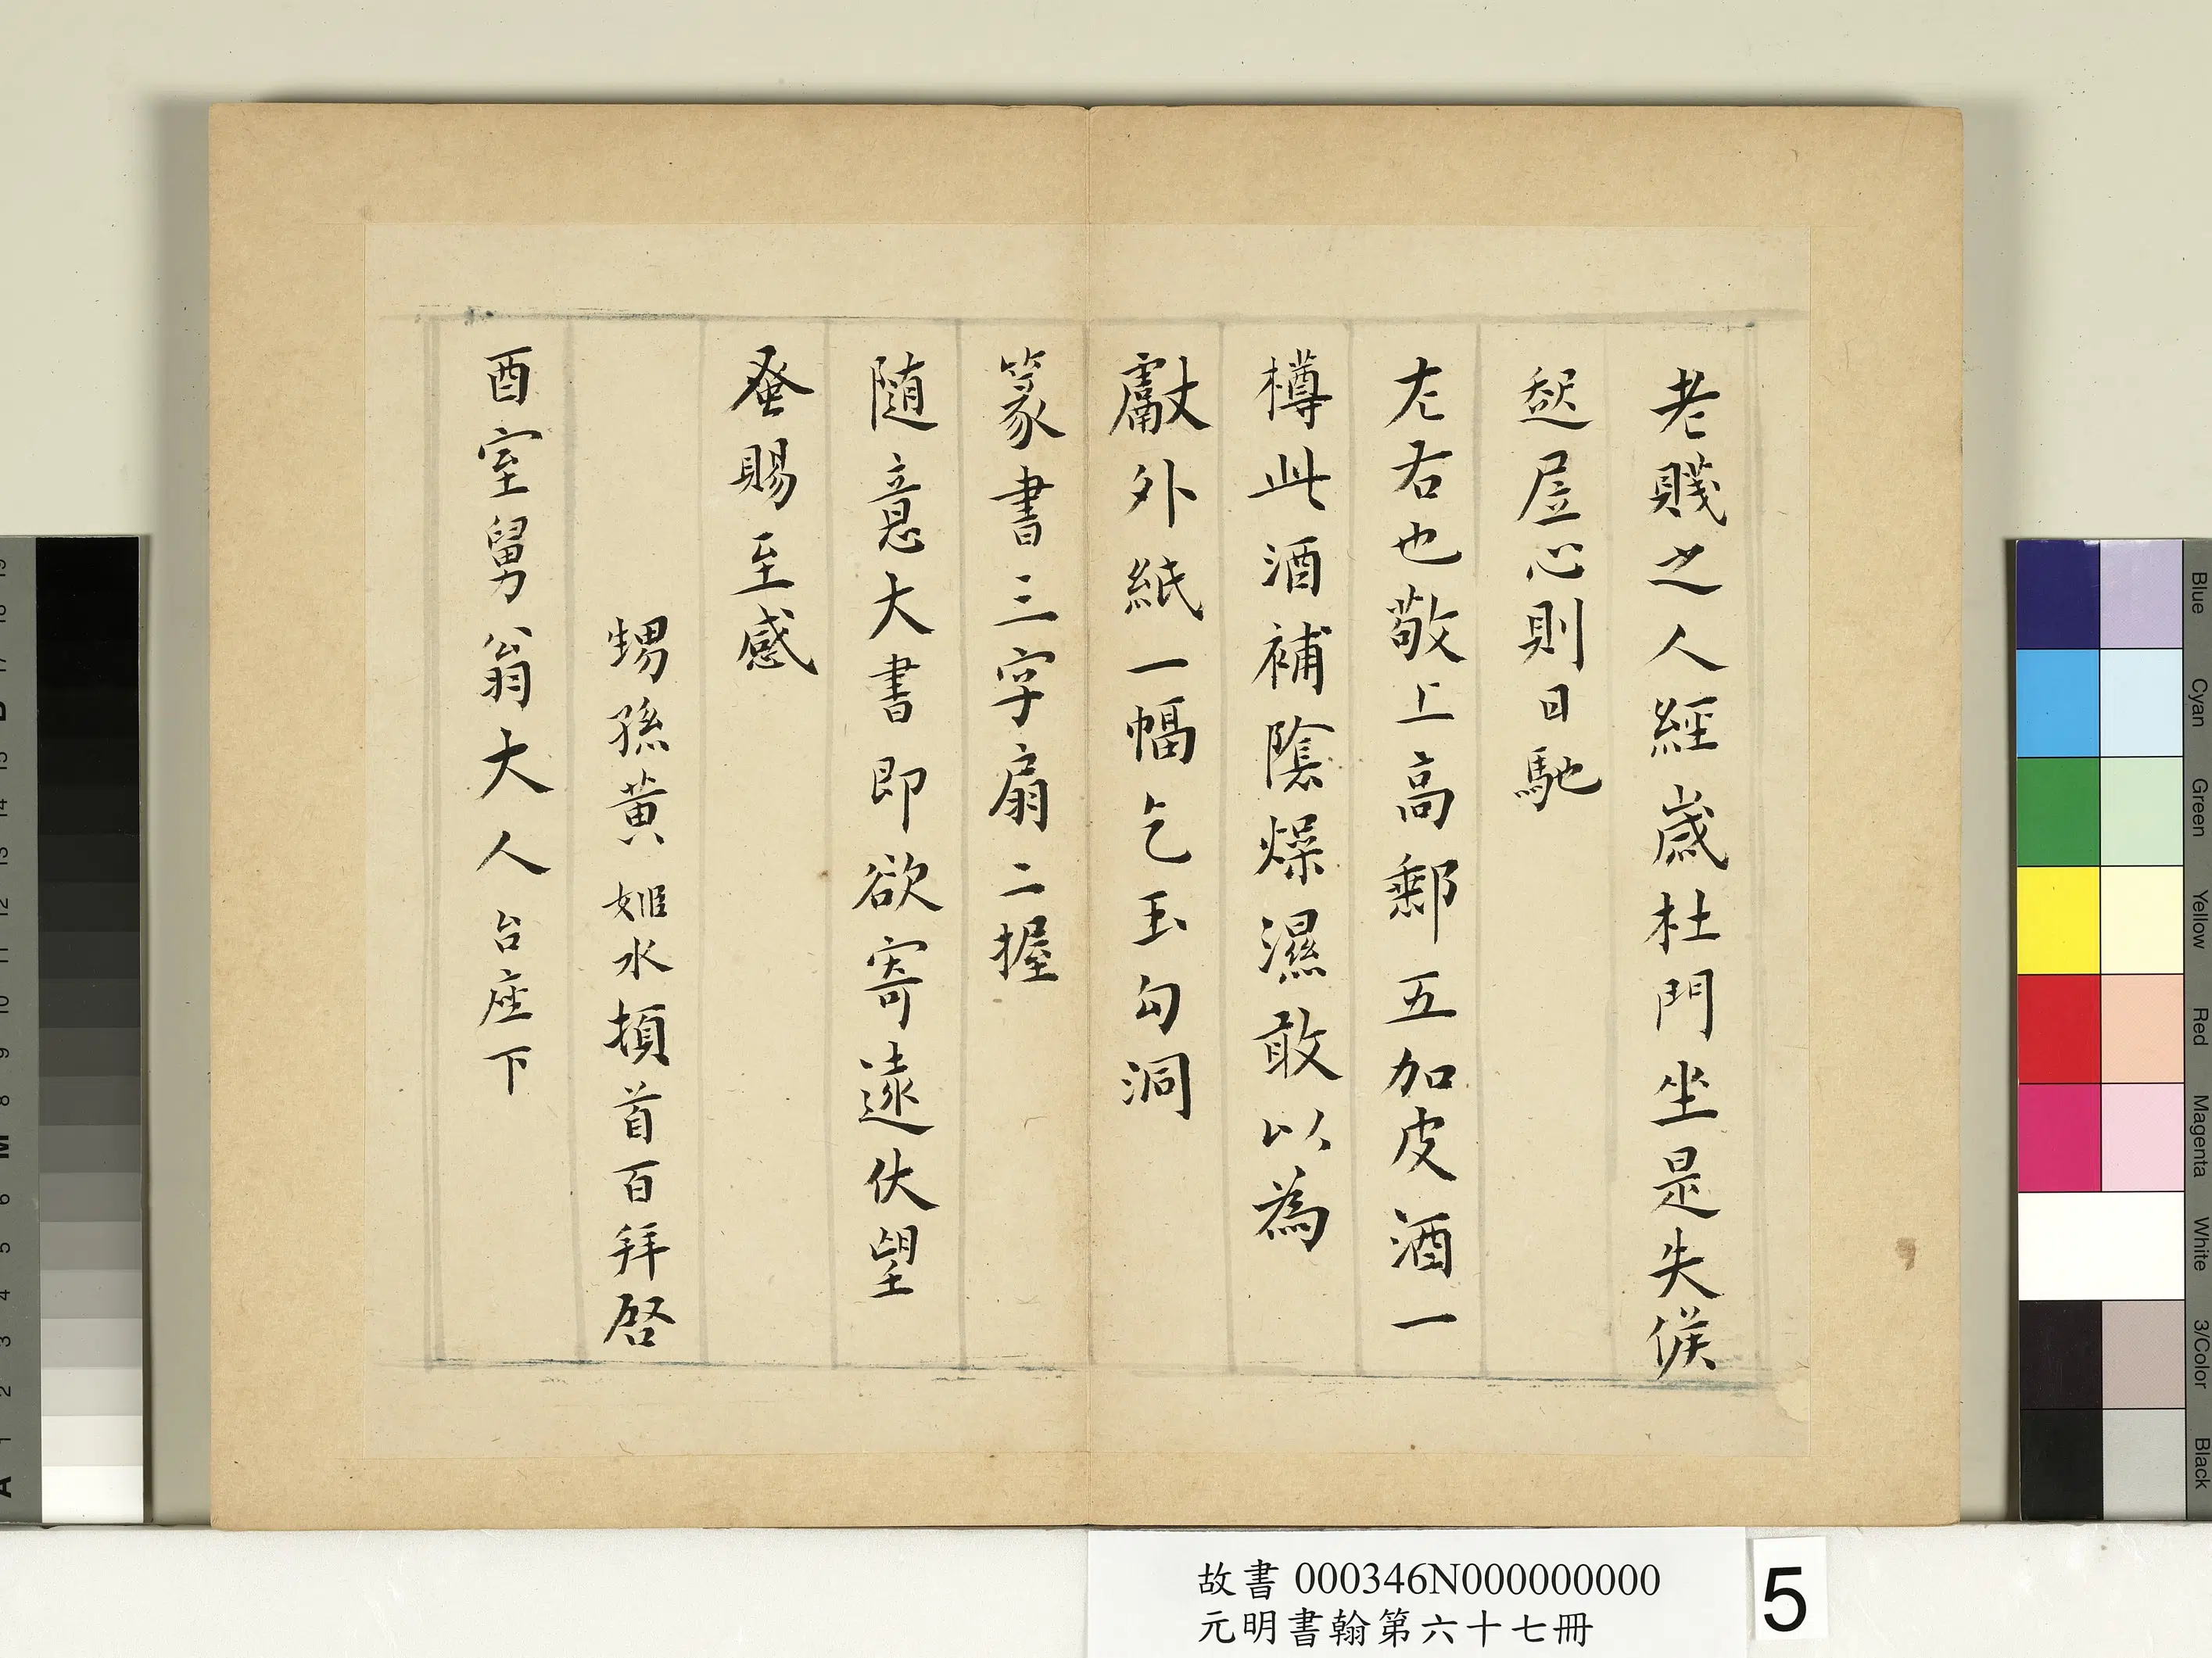 老賤之人經歲杜門坐是失候
起居心則日馳
左右也敬上高郵五加皮酒一
樽此酒補陰燥濕敢以為
獻外紙一幅乞玉勾洞
篆書三字扇二握
随意大書即欲寄遠伏望
蚤賜至感
甥孫黃姬水頓首百拜啓
酉室舅翁大人台座下
故書 000346N000000000
元明書翰第六十七冊
5
Blue
Cyan
Green
Yellow
Red
Magenta
White
3/Color
Black
19
18
17
B
15
14
13
12
11
10
9
8
M
6
5
4
3
2
1
A